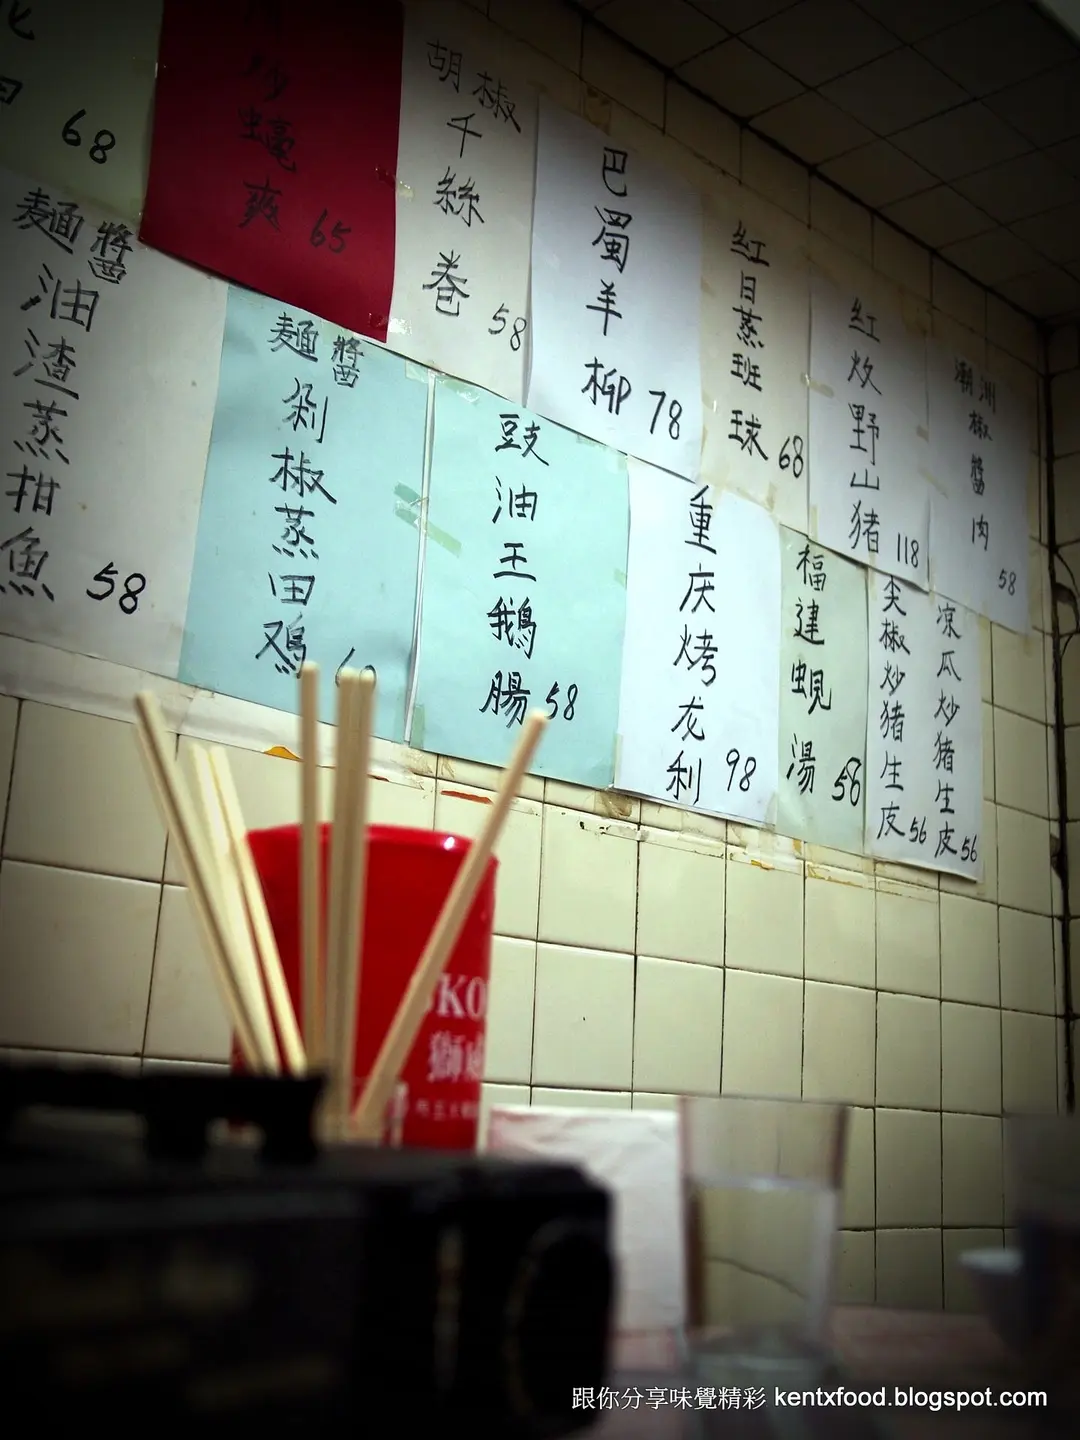 68
炒
爽
65
胡椒
千絲卷
58
巴蜀羊柳
78
紅日蒸班球
68
紅炆野山猪
118
潮洲
椒醬肉
58
麵醬
油渣蒸拑魚
58
麵醬
剁椒蒸田鸡
豉油王鵝腸
58
重庆烤龙利
98
福建蜆湯
56
尖椒炒猪生皮
56
凉瓜炒猪生皮
56
獅威
跟你分享味覺精彩 kentxfood.blogspot.com